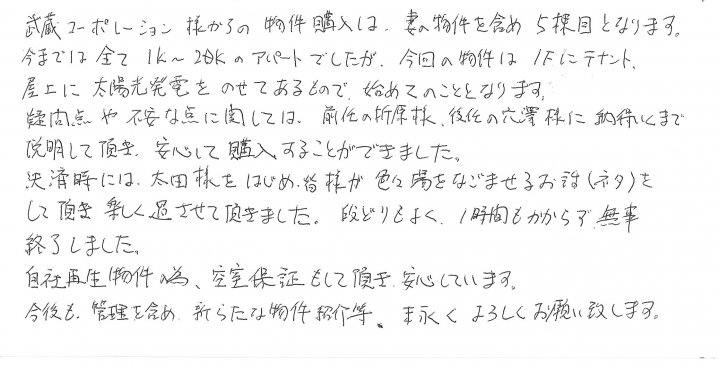 武蔵コーポレーション様からの物件購入は、妻の物件を含め5棟目となります。
今までは全て1K〜2DKのアパートでしたが、今回の物件は1Fにテナント、
屋上に太陽光発電をのせてあるもので、始めてのこととなります。
疑問点や不安な点に関しては、前任の折原様、後任の穴澤様に納得いくまで
説明して頂き、安心して購入することができました。
決済時には、太田様をはじめ、皆様が色々場をなごませるお話(ネタ)を
して頂き楽しく過させて頂きました。段どりもよく、1時間もかからず、無事
終了しました。
自社再生物件の為、空室保証もして頂き、安心しています。
今後も、管理を含め、新らたな物件紹介等、末永くよろしくお願い致します。